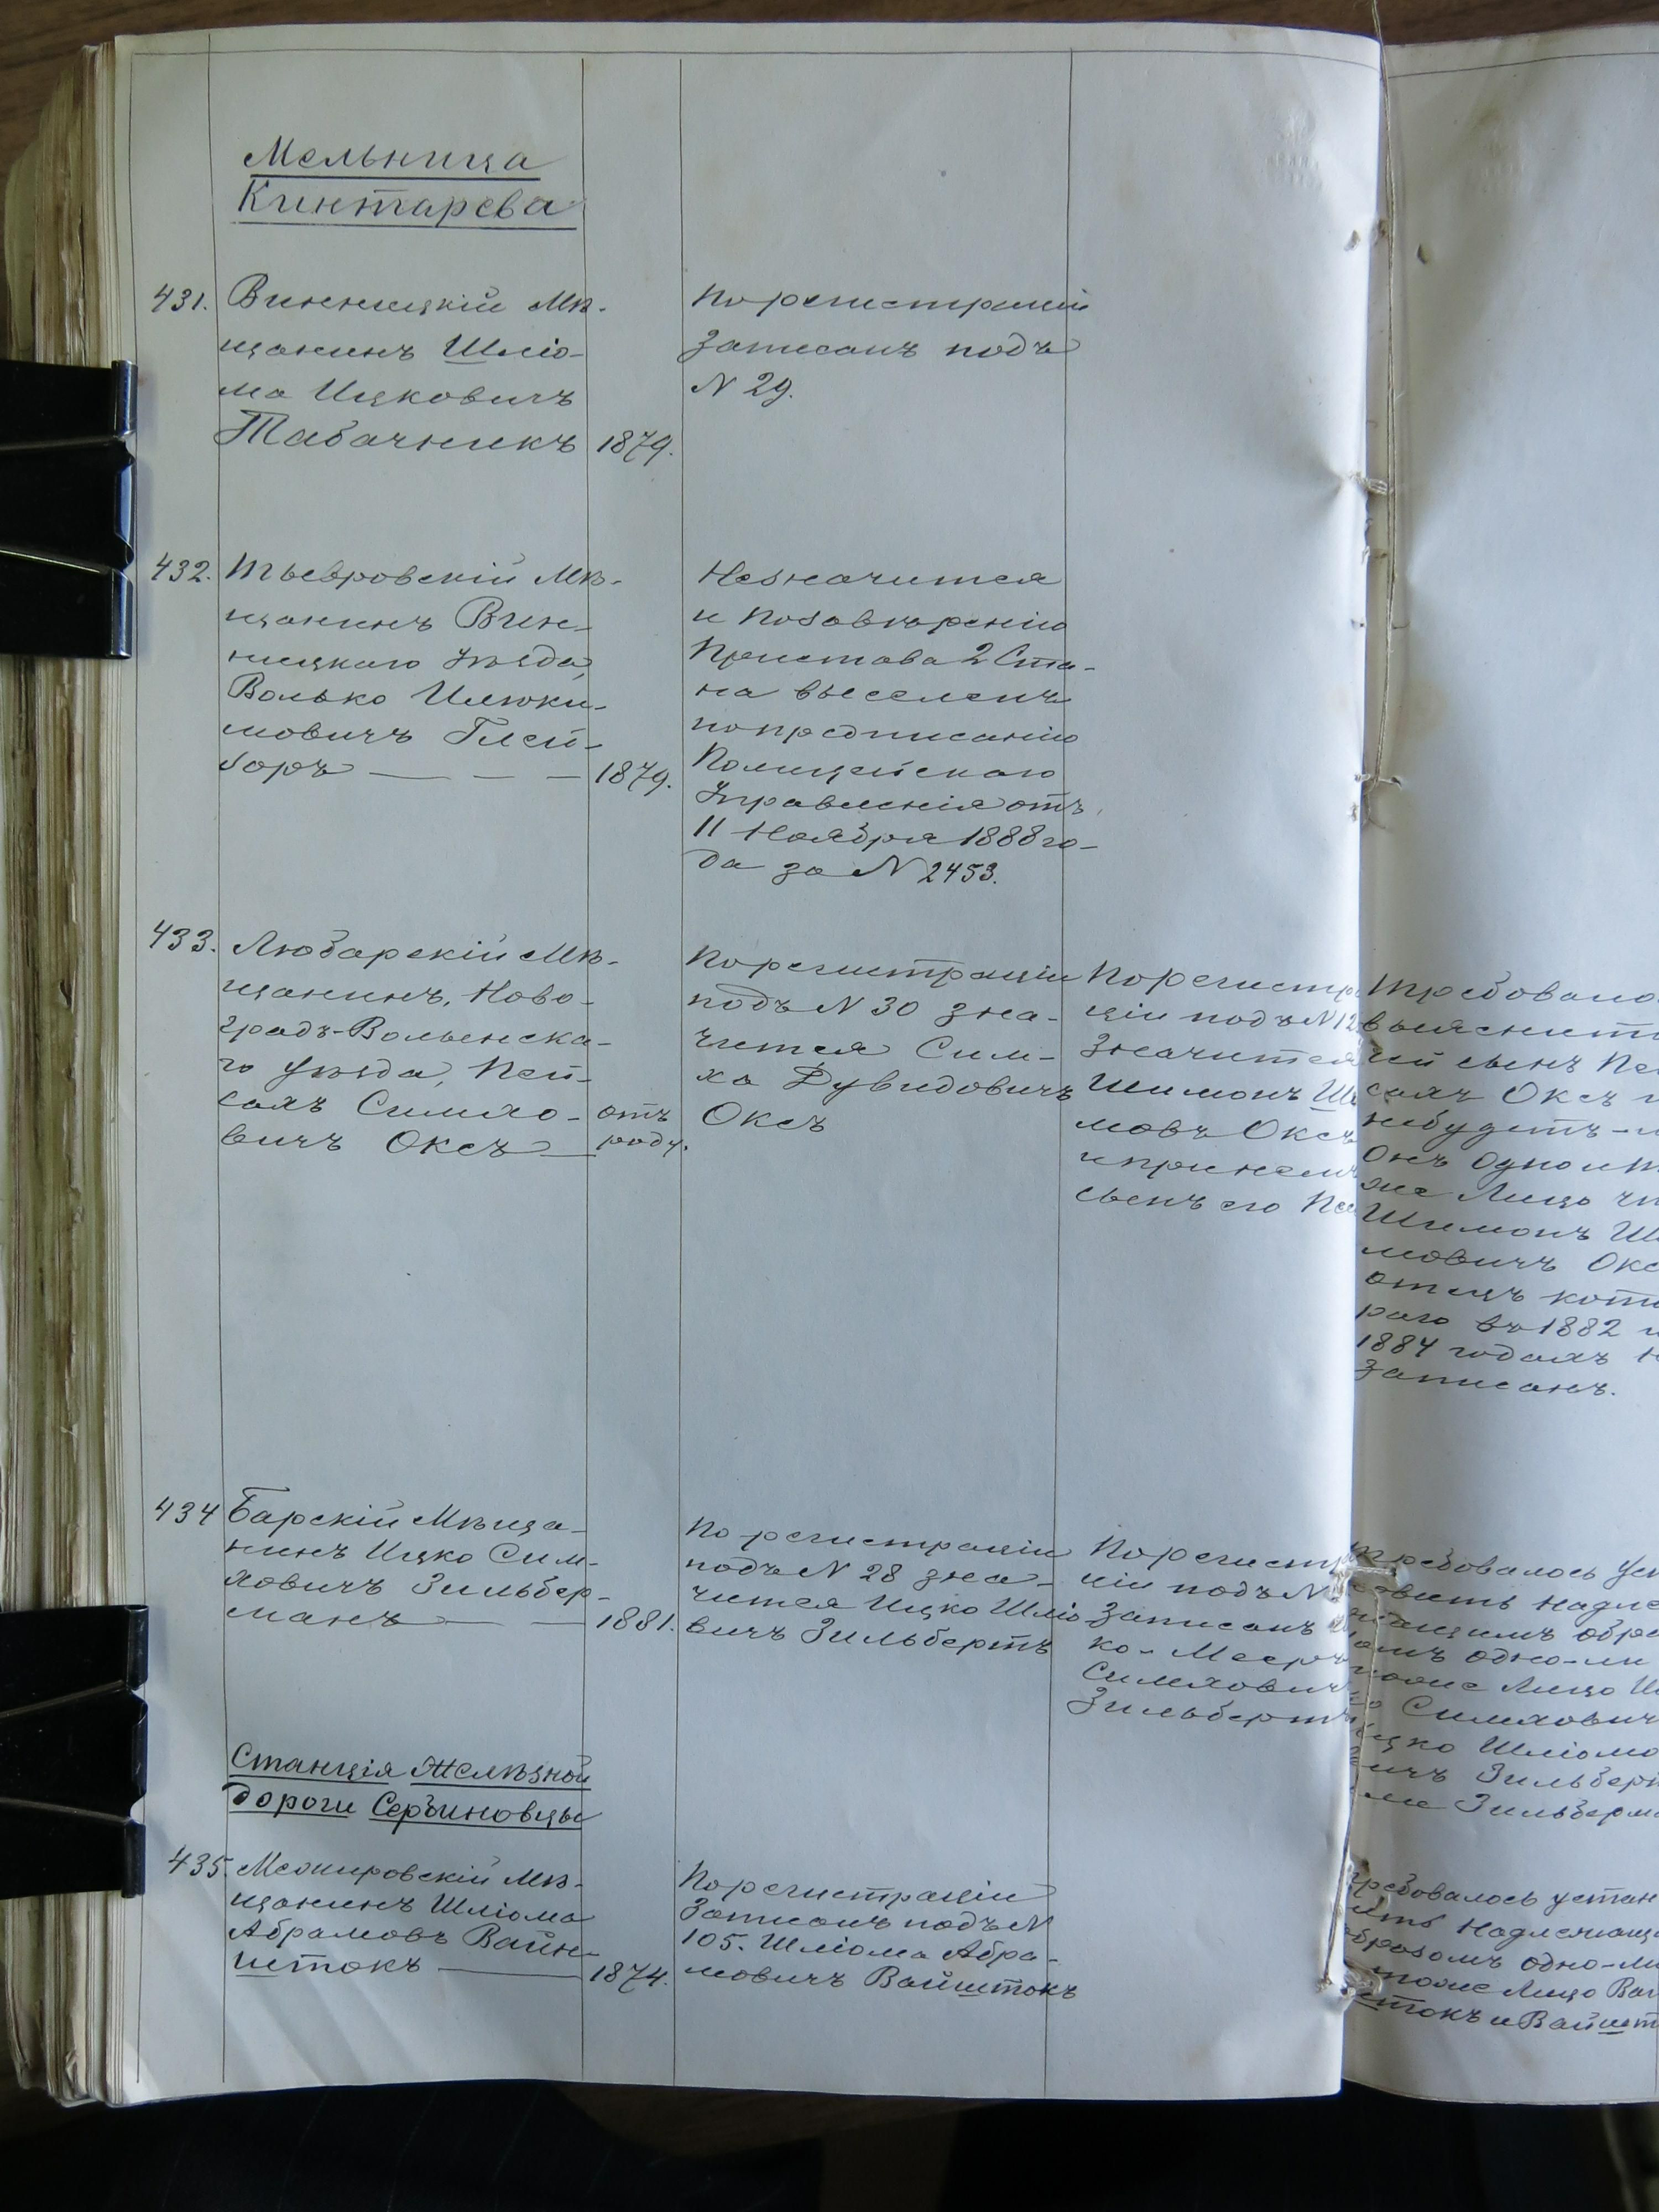 Мельница
Кинтарева
431. Винницкій Мѣ-
щанинъ Шліо-
ма Ицковичъ
Табачникъ 1879.
По регистраціи
записанъ подъ
N 29.
432. Тывровскій Мѣ-
щанинъ Вин-
ницкаго Уѣзда,
Волько
мовичъ Глей-
зоръ — — — 1879.
Незначится
и позавѣренію
Пристава 2 Ста-
на выселенъ
попредписанію
Полицейскаго
Управленія отъ
11 Ноября 1888 го-
да за N 2453.
433. Любарскій Мѣ-
щанинъ, Ново-
градъ-Волынска-
го уѣзда, Пей-
сахъ Симхо- отъ
вичъ Оксъ — роду.
По регистраціи
подъ N 30 зна-
чится Сим-
ха Дувидовичъ
Оксъ
По регистр
ціи подъ N 12
значится
Шимонъ Ш
мовъ Оксъ
и при немъ
сынъ его Пе
Требовало
выяснит
ій сынъ Пе
сахъ Оксъ
небудетъ-
онъ одно и т
же лицо
Шимонъ Ш
мовичъ Окс
отецъ кото
раго въ 1882 и
1884 годахъ н
записанъ.
434 Барскій Мѣща-
нинъ Ицко Сим-
ховичъ Зильбер-
манъ — — 1881.
По регистраціи
подъ N 28 зна-
чится Ицко Шліо
вичъ Зильбертъ
По регист
ціи подъ N
записанъ
ко-Меер
Симхович
Зильберт
требовалось уст
овить надле
жащимъ обра
омъ одно-ли
тоже лицо И
о Симхович
Ицко Шліомо
ичъ Зильбер
ли Зильберма
Станція Желѣзной
дороги Сербиновцы
435. Межировскій Мѣ-
щанинъ Шліома
Абрамовъ Вайн-
штокъ — 1874.
По регистраціи
Записанъ подъ N
105. Шліома Абра-
мовичъ Вайштокъ
требовалось устан
ить надлежащ
образомъ одно-ли
тоже лицо Вай
штокъ и Вайшт